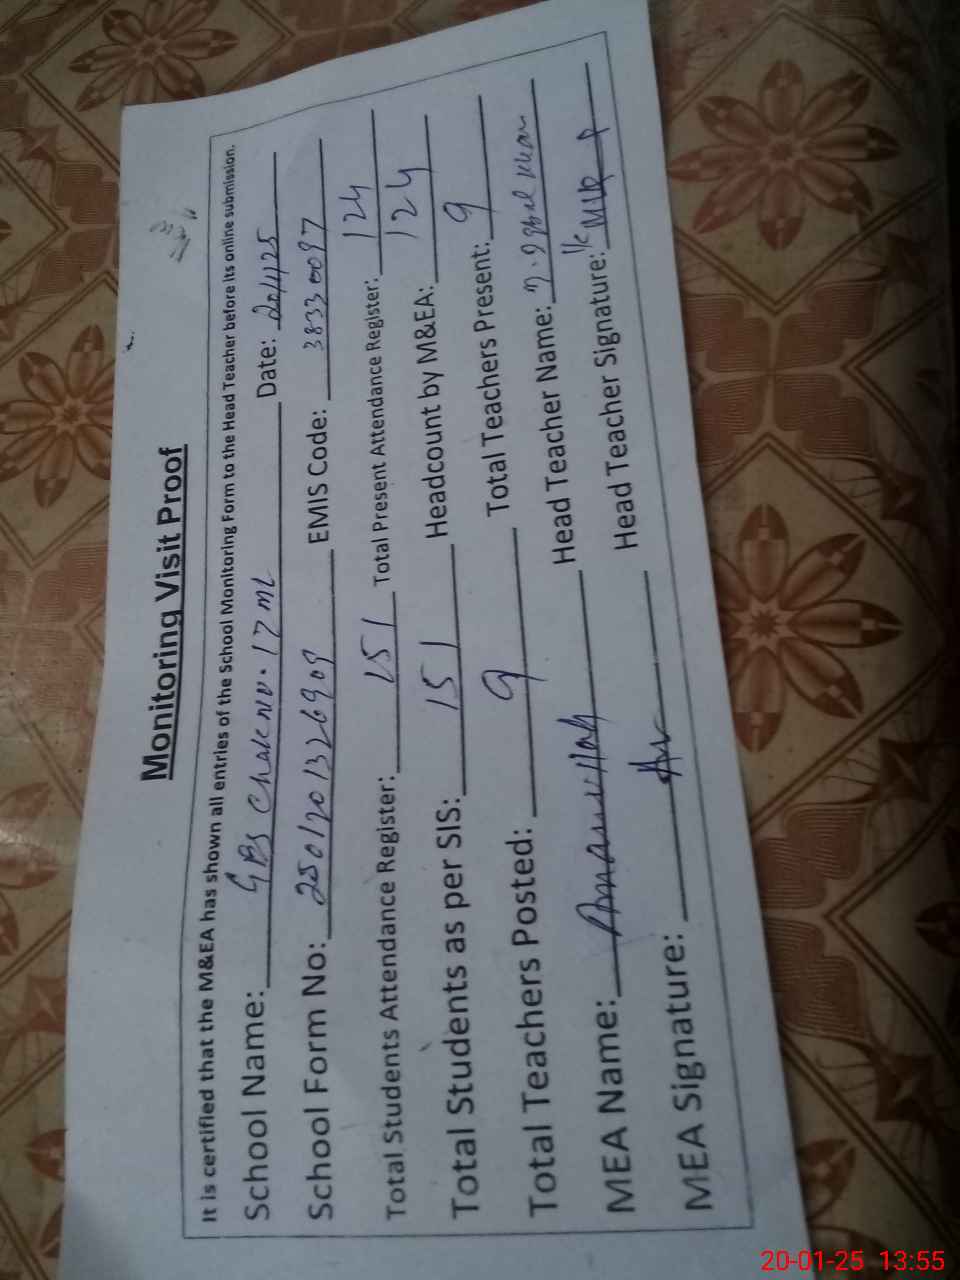 Monitoring Visit Proof
It is certified that the M&EA has shown all entries of the School Monitoring Form to the Head Teacher before its online submission.
School Name: GPS Chak No. 17 ML Date: 20/1/25
School Form No: 2501201326909 EMIS Code: 38330097
Total Students Attendance Register: 151 Total Present Attendance Register: 124
Total Students as per SIS: 151 Headcount by M&EA: 124
Total Teachers Posted: 9 Total Teachers Present: 9
MEA Name: Amanullah Head Teacher Name: M. Iqbal Khan
MEA Signature: Head Teacher Signature:
20-01-25 13:55